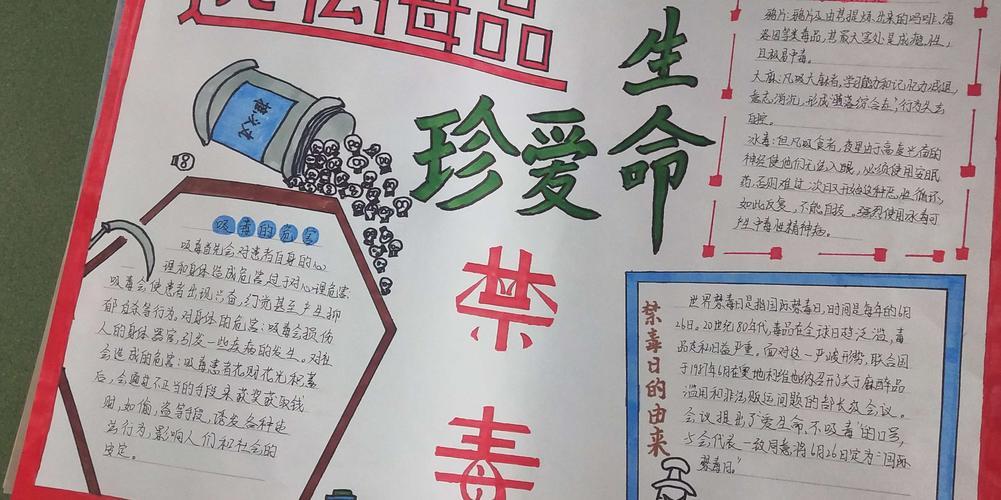 抵制毒品
珍爱生命
禁毒
吸毒的危害
吸毒首先会对患者自身的心
理和身体造成危害,过于对心理危害:
吸毒会使患者出现兴奋,幻觉甚至产生抑
郁自杀等行为。对身体的危害:吸毒会损伤
人的身体器官,引发一些疾病的发生。对社
会造成的危害:吸毒患者花财花光积蓄
后,会通过不正当的手段来获取钱
财,如偷,盗等手段,诱发各种违
法行为,影响人们和社会的
安定。
鸦片:鸦片及由其提炼出来的吗啡、海
洛因等类毒品,其最大害处是成瘾性,
且极易中毒。
大麻:凡吸大麻者,学习能力和记忆力减退,
意志消沉,形成"满落综合症",行为失去
自控。
冰毒:但凡吸食者,夜里由于高度兴奋的
神经使他们无法入眠,必须使用安眠
药,否则难过,次日又开始这种恶性循环,
如此反复,不能自拔。强烈使用冰毒可
产生中毒性精神病。
禁毒日的由来
世界禁毒日是指国际禁毒日,时间是每年的6月
26日。20世纪80年代,毒品在全球日趋泛滥,毒
品走私日益严重。面对这一严峻形势,联合国
于1987年6月在奥地利维也纳召开了关于麻醉品
滥用和非法贩运问题的部长级会议。
会议提出了"爱生命,不吸毒"的口号,
与会代表一致同意将6月26日定为"国际
禁毒日。"